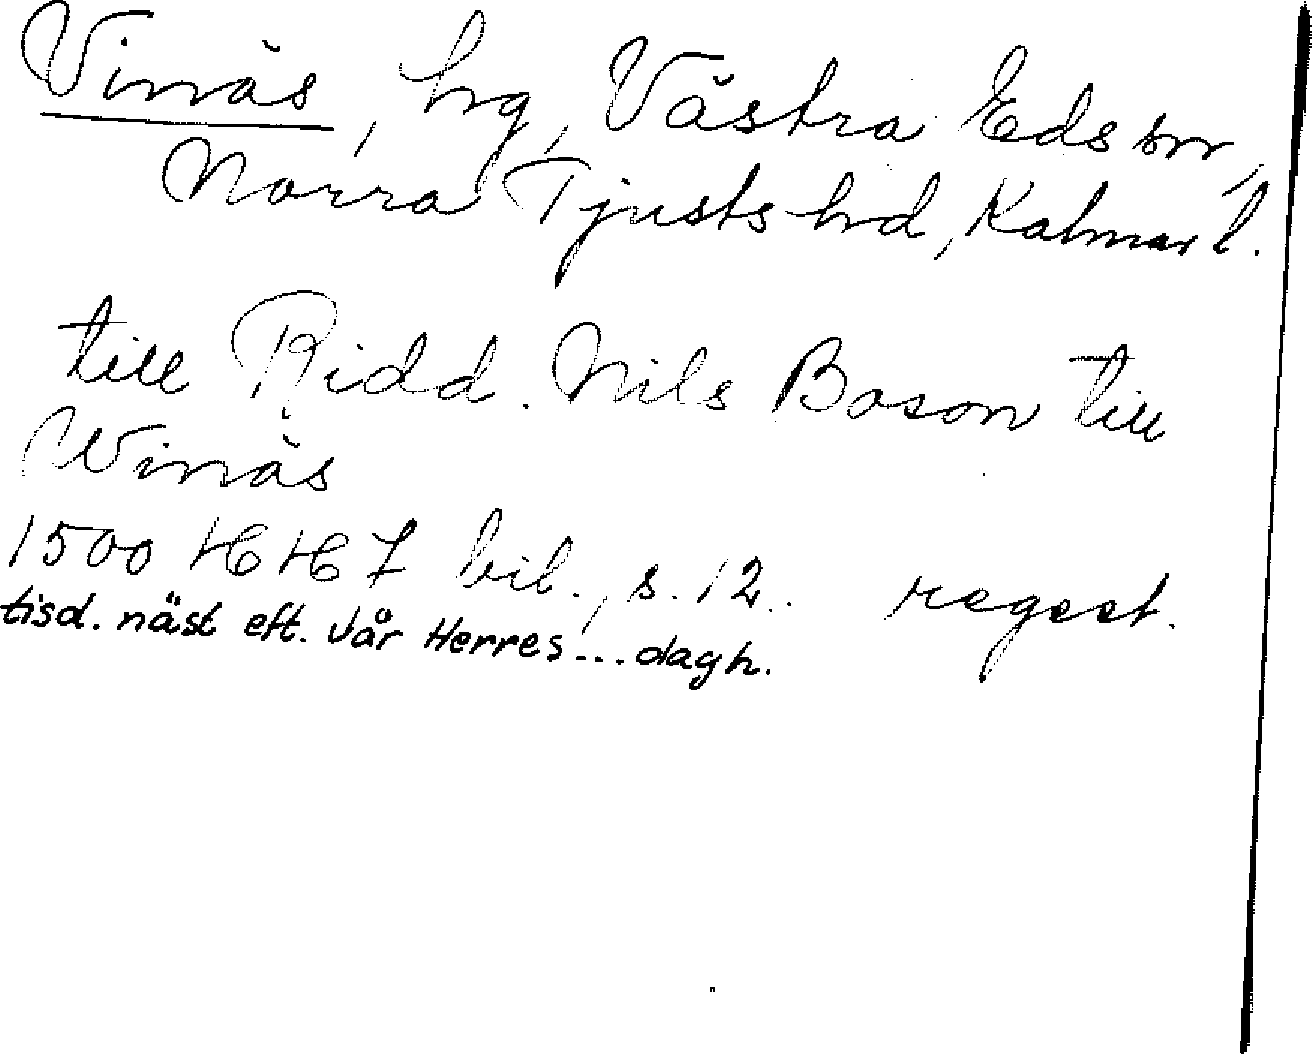 Vinäs, hg, Västra Eds sn,
Norra Tjusts hd, Kalmar l.
till Ridd. Nils Boson till
Winäs
1500 HH I bil., s. 12. regest.
tisd. näst eft. Vår Herres ... dagh.